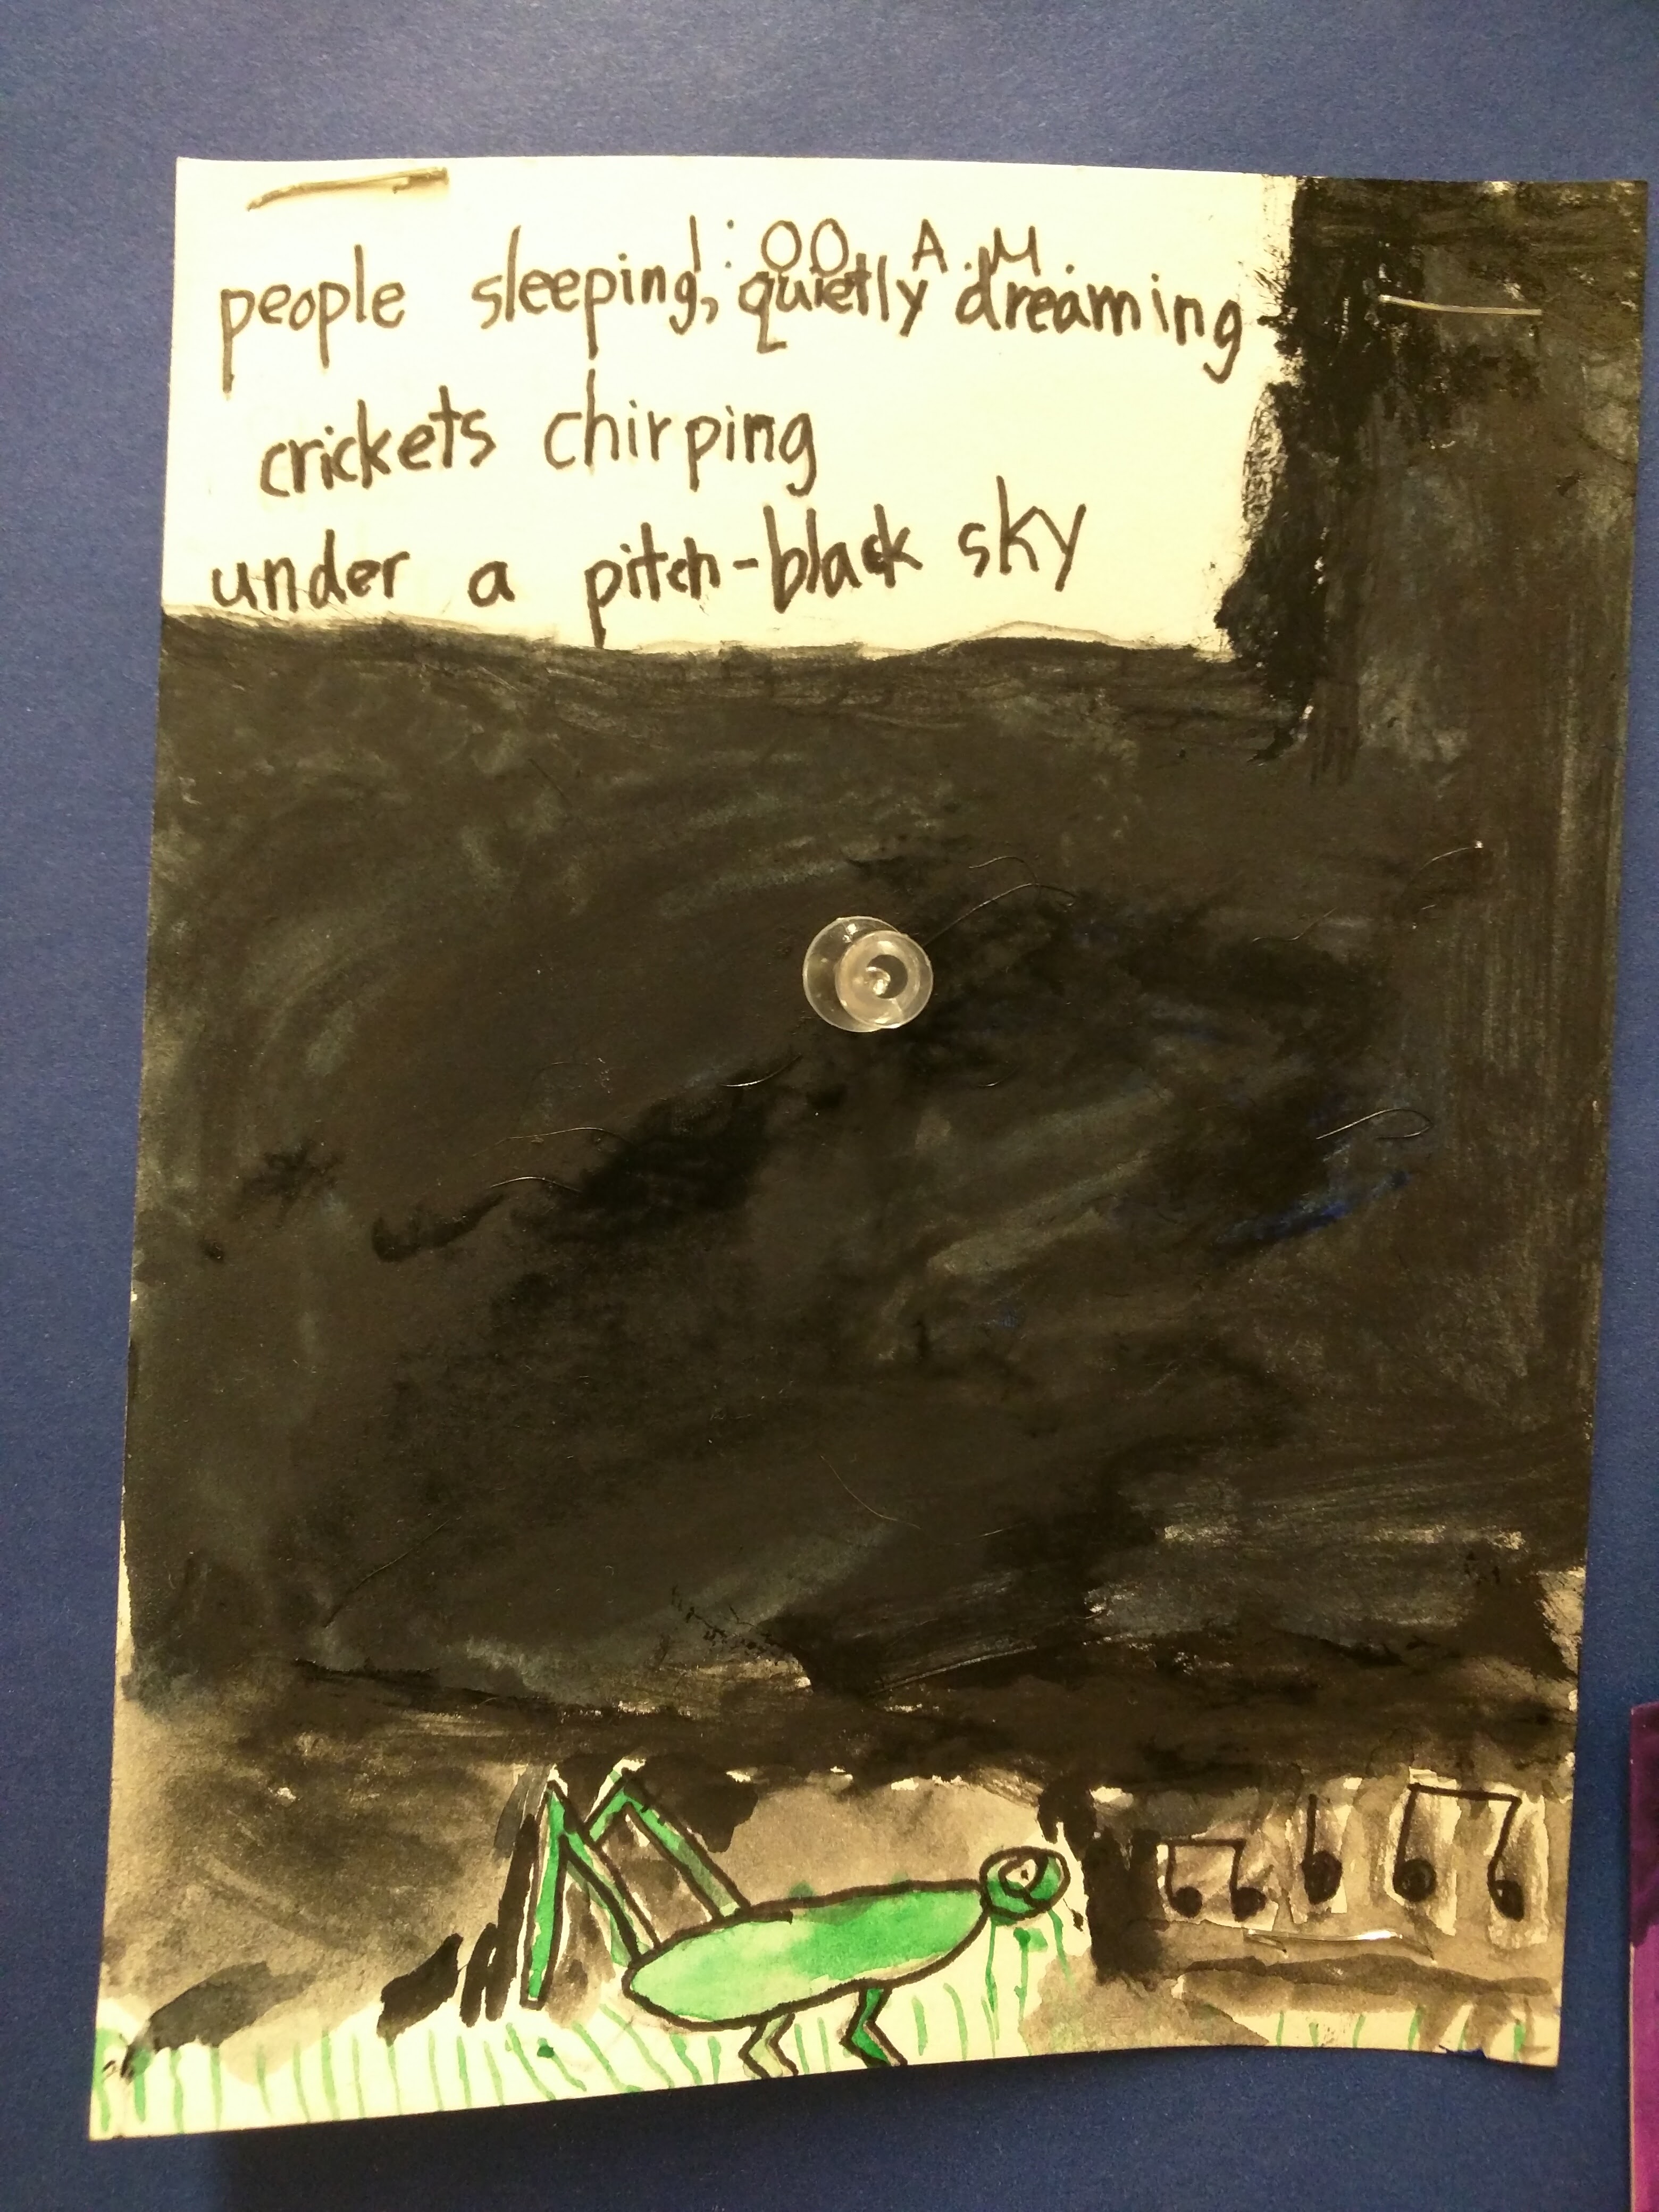 1:00 A.M.
people sleeping, quietly dreaming
crickets chirping
under a pitch-black sky